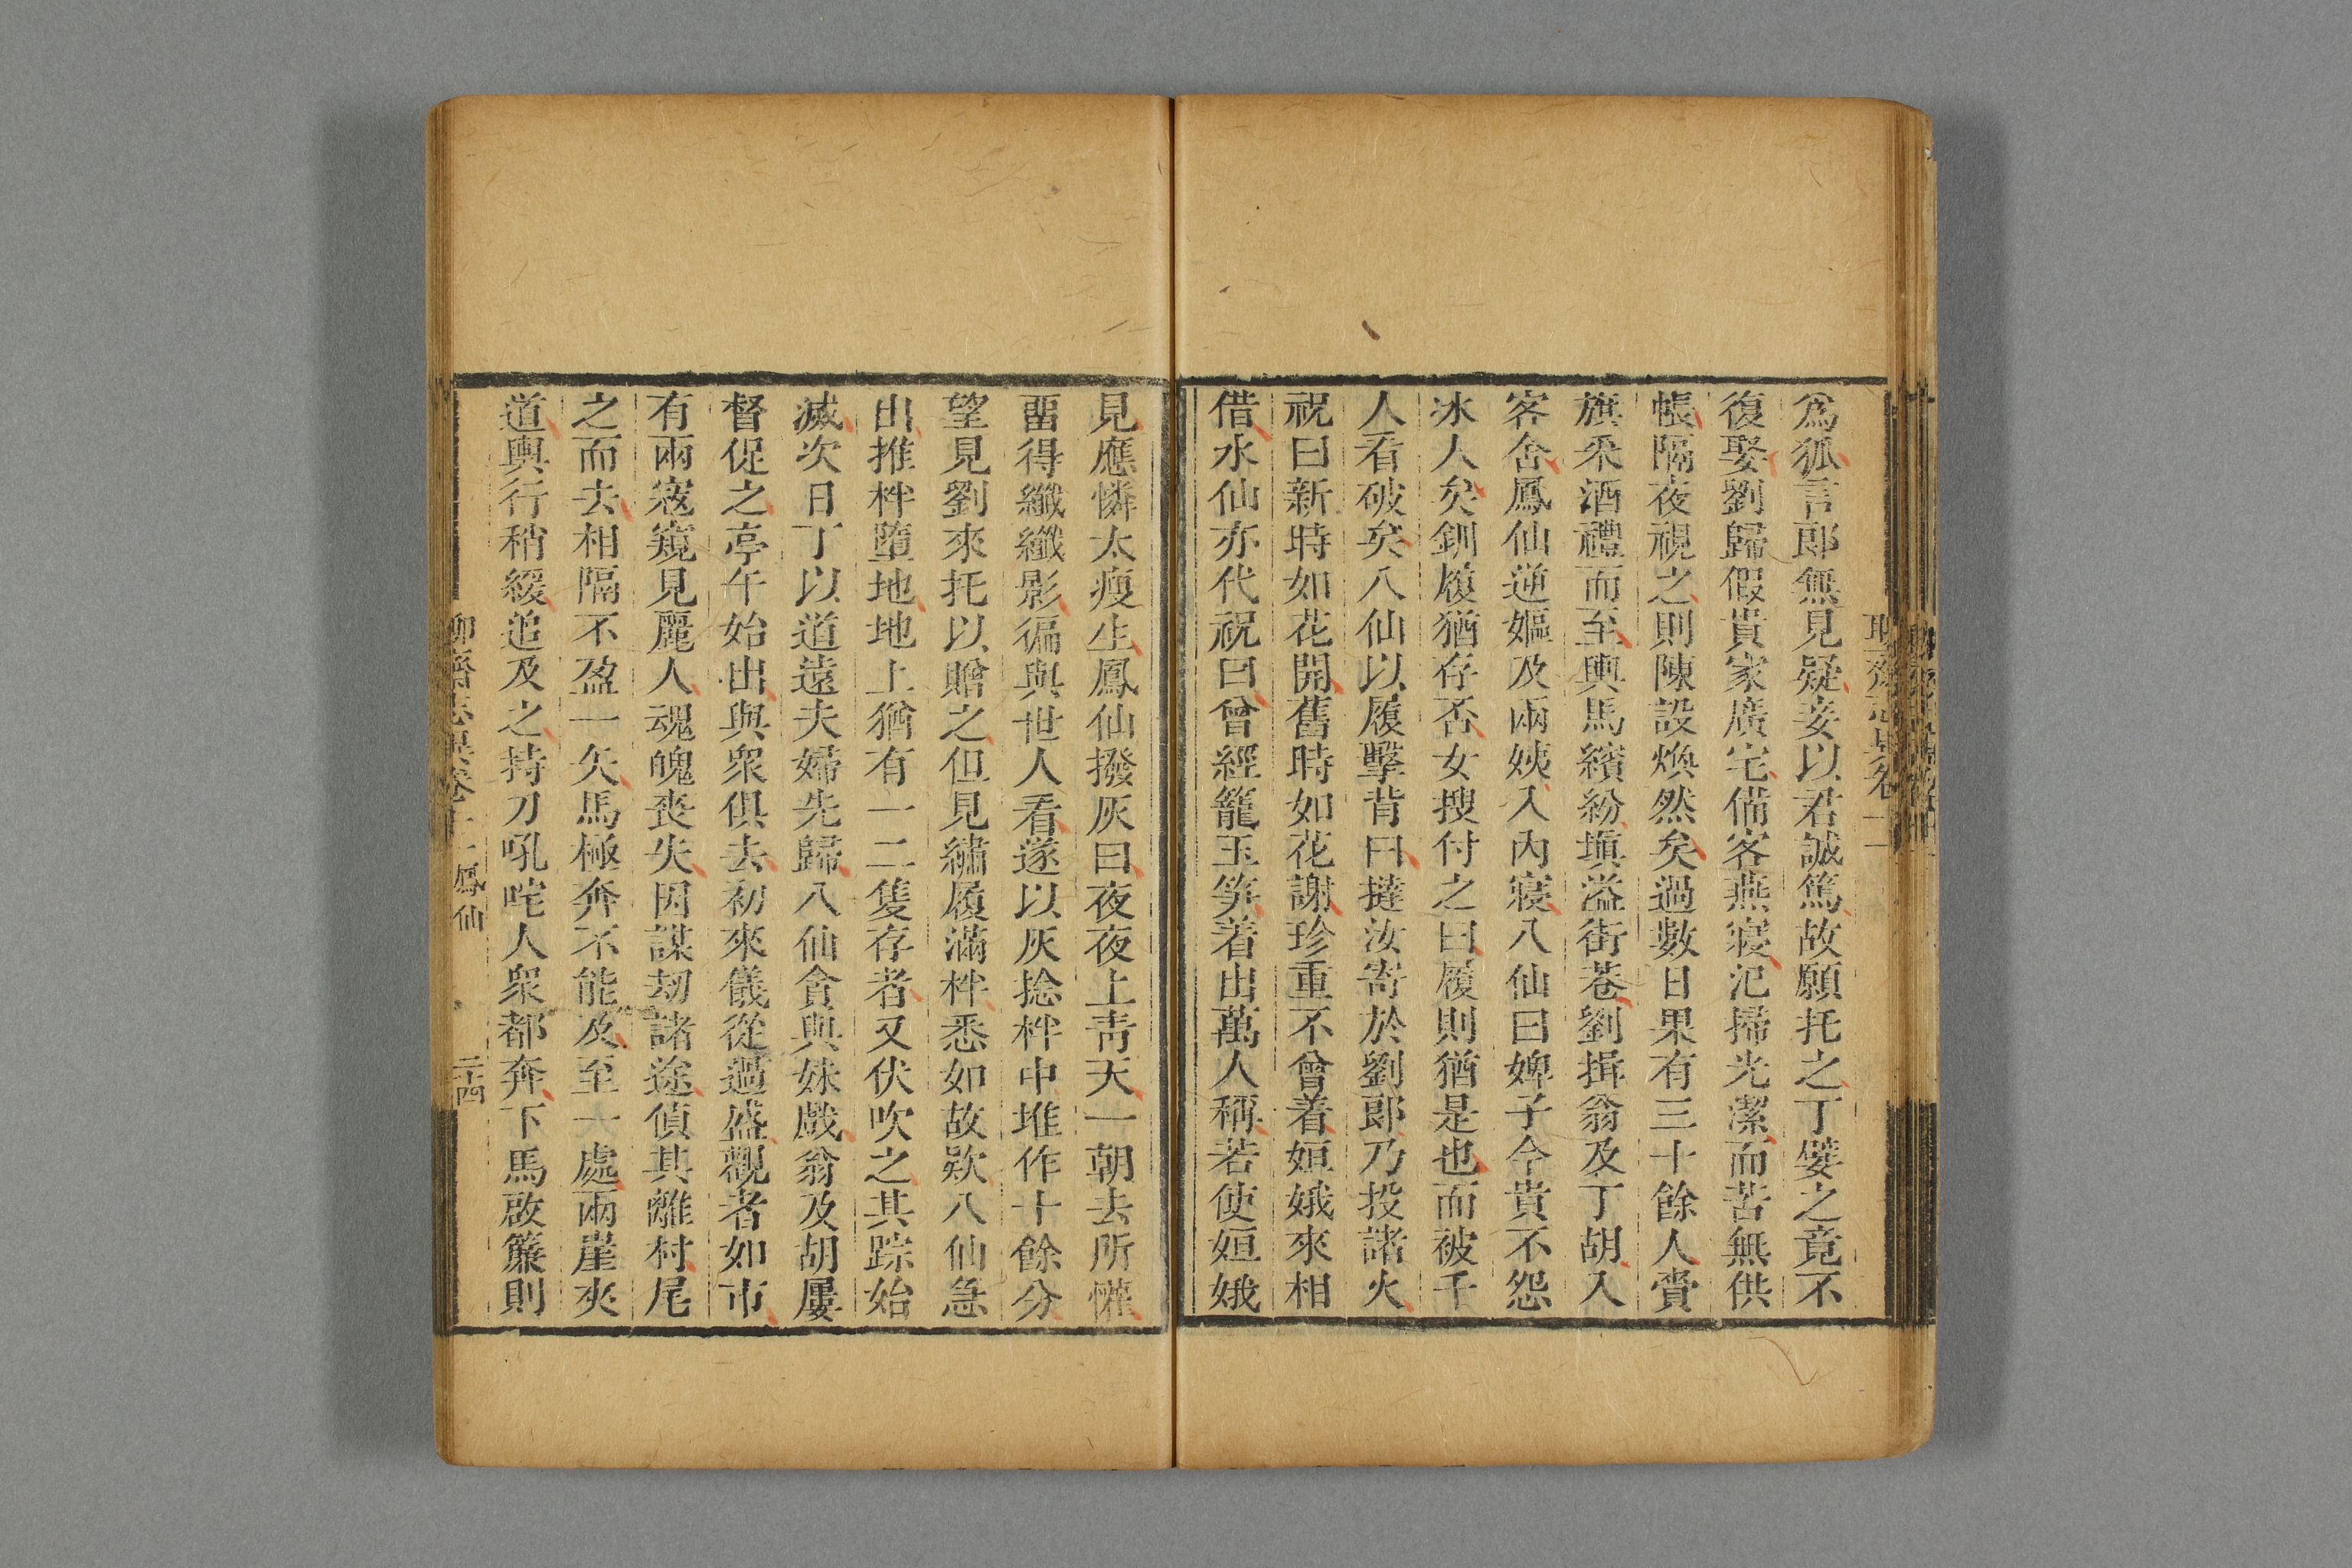 爲狐言郎無見疑妾以君誠篤故願托之丁嬖之竟不
復娶劉歸假貴家廣宅備客燕寢汜掃光潔而苦無供
帳隔夜視之則陳設煥然矣過數日果有三十餘人賫
旗采酒禮而至輿馬繽紛塡溢街巷劉揖翁及丁胡入
客舍鳳仙逆嫗及兩姨入內寢八仙曰婢子今貴不怨
冰人矣釧履猶存否女搜付之曰履則猶是也而被千
人看破矣八仙以履擊背曰撻汝寄於劉郎乃投諸火
祝曰新時如花開舊時如花謝珍重不曾着姮娥來相
借水仙亦代祝曰曾經籠玉笋着出萬人稱若使姮娥
見應憐太瘦生鳳仙撥灰曰夜夜上靑天一朝去所懽
畱得纖纖影徧與世人看遂以灰捻柈中堆作十餘分
望見劉來托以贈之但見繡履滿柈悉如故欵八仙急
出推柈墮地地上猶有一二隻存者又伏吹之其踪始
滅次日丁以道遠夫婦先歸八仙貪與妹戲翁及胡屢
督促之亭午始出與衆俱去初來儀從過盛觀者如市
有兩寇窺見麗人魂魄喪失因謀刼諸途偵其離村尾
之而去相隔不盈一矢馬極奔不能及至一處兩崖夾
道輿行稍緩追及之持刀吼咤人衆都奔下馬啟簾則
聊齋志異卷十二 鳳仙 二十四